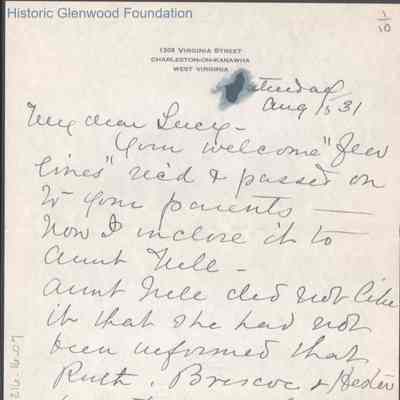 Historic Glenwood Foundation
1/10
1308 VIRGINIA STREET
CHARLESTON-ON-KANAWHA
WEST VIRGINIA
Saturday
Aug 15 31
My dear Lucy -
Your welcome "few
lines" rec'd & passed on
to your parents —
Now I inclose it to
Aunt Nell -
Aunt Nell did not like
it that she had not
been informed that
Ruth, Briscoe & Hester